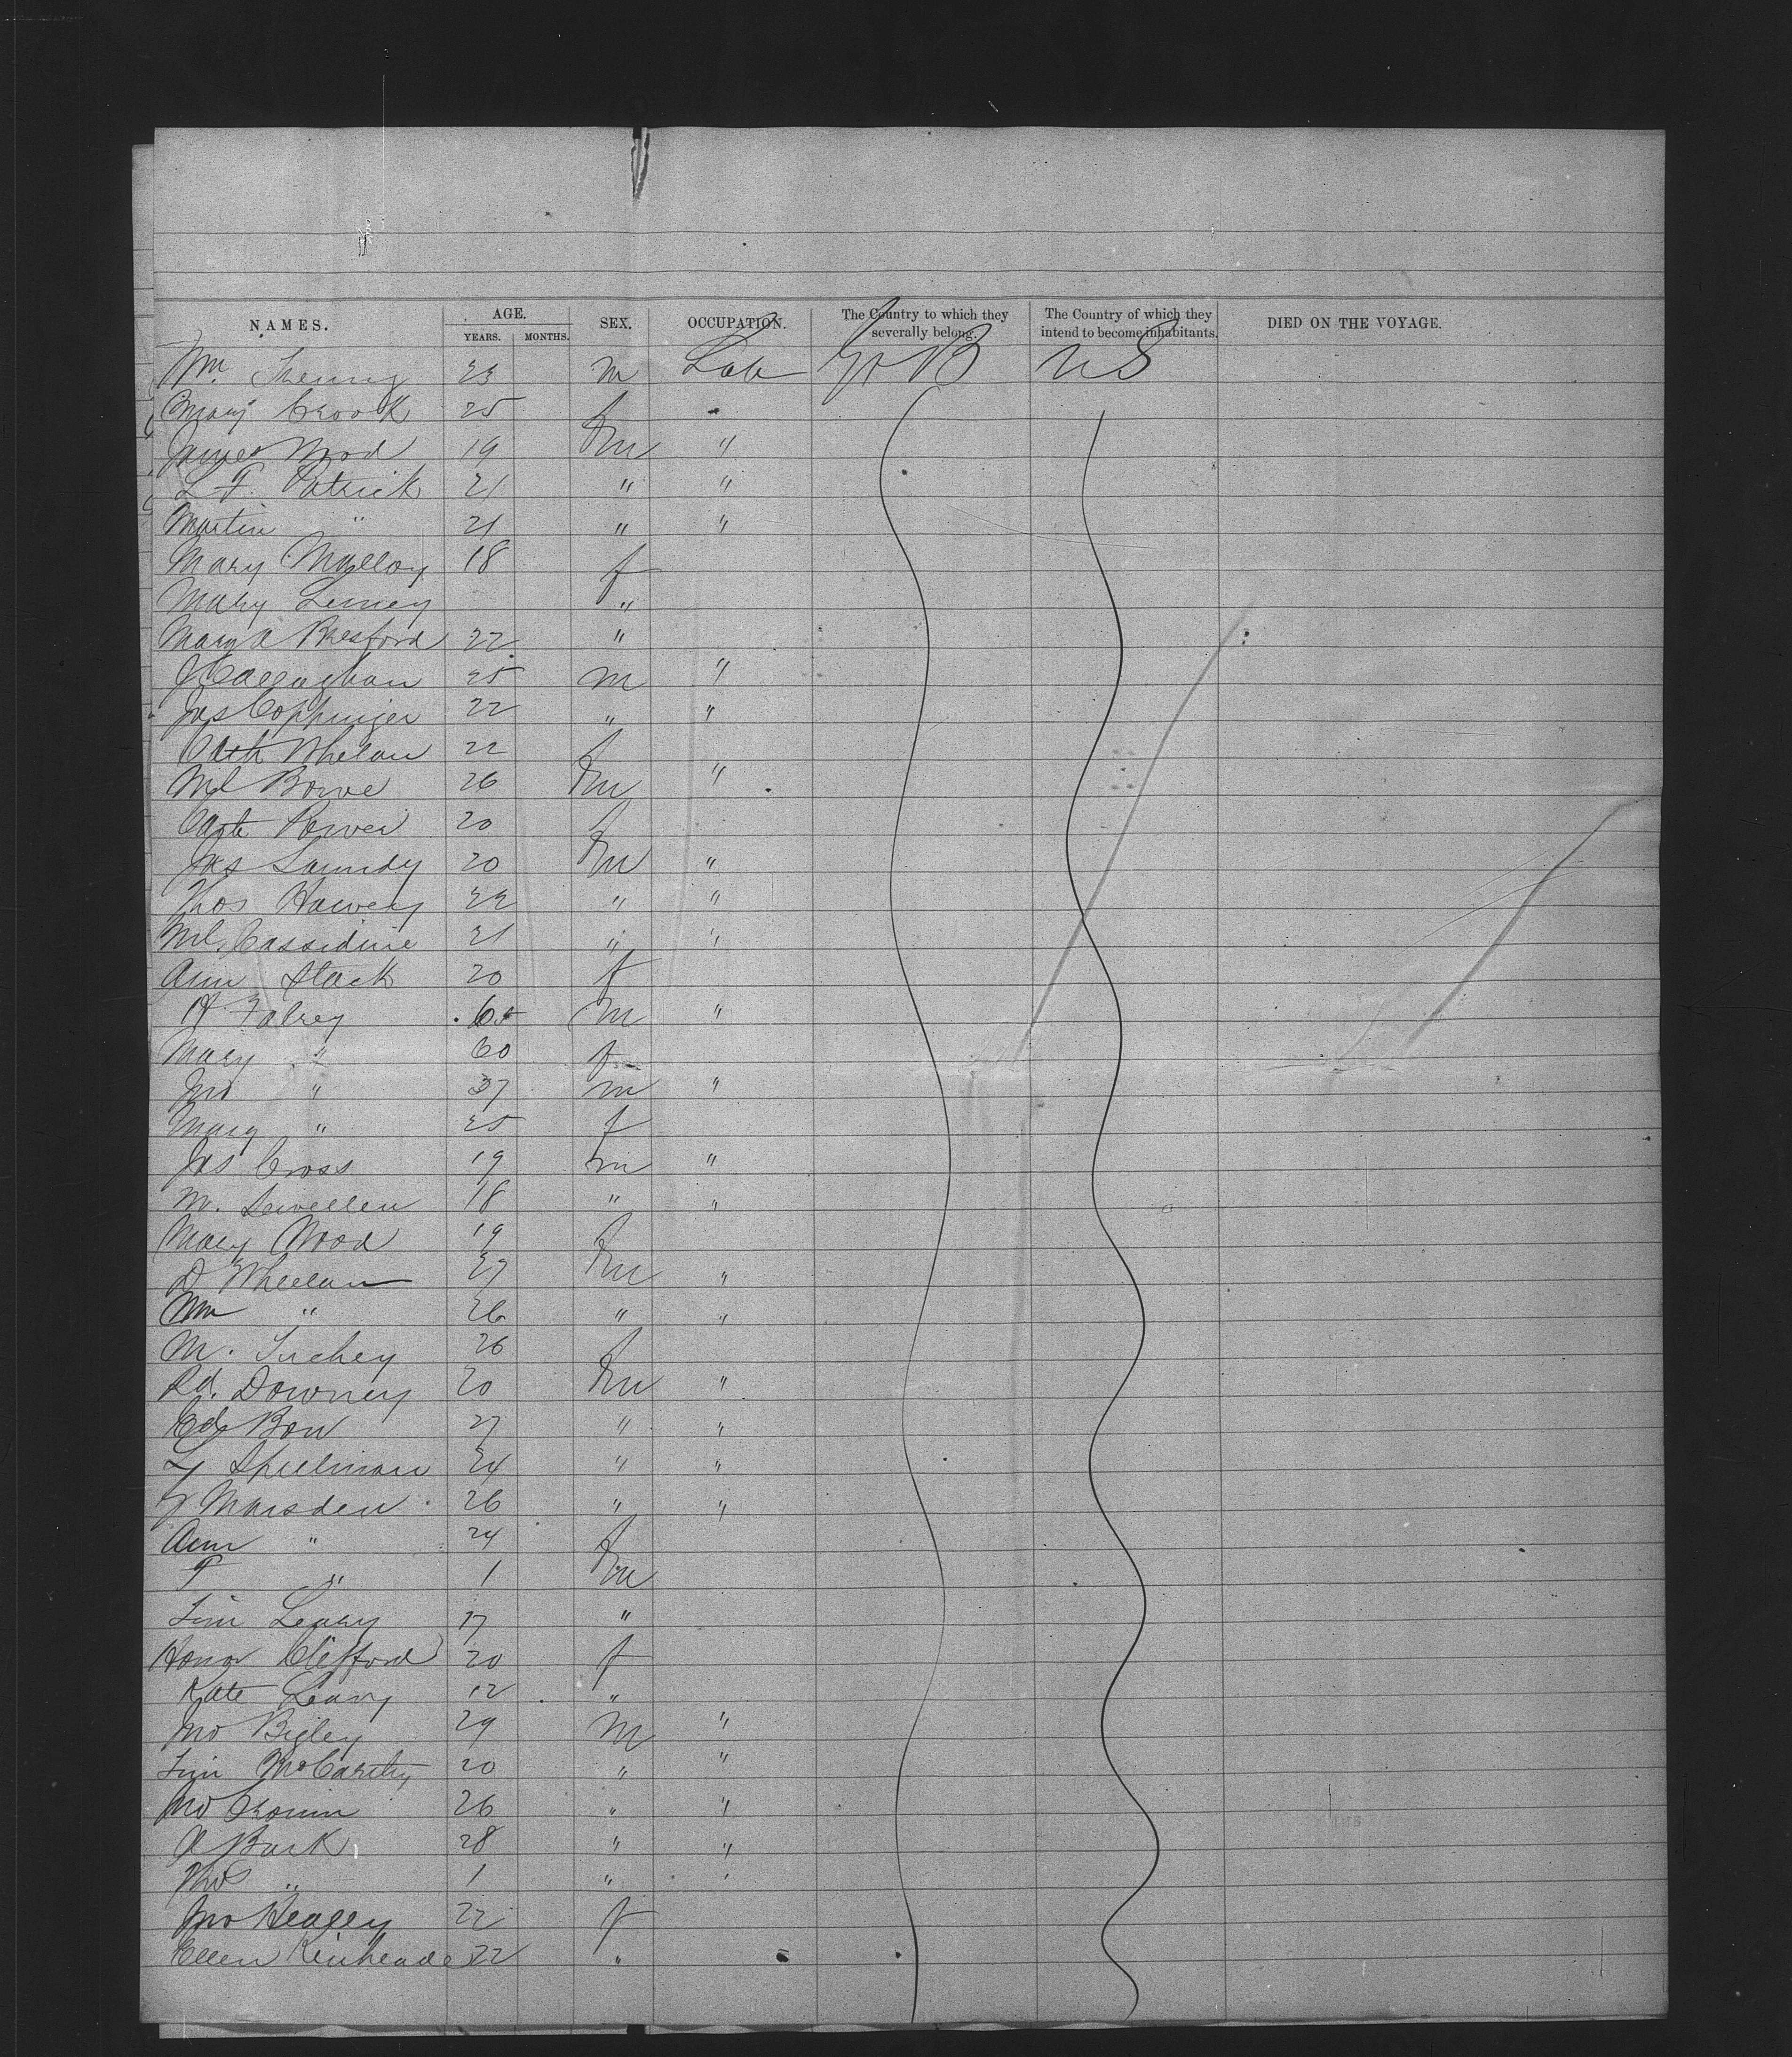 NAMES. AGE. YEARS. MONTHS. SEX. OCCUPATION. The Country to which they severally belong. The Country of which they intend to become inhabitants. DIED ON THE VOYAGE.
Wm. 23 m Lab Gr B U S
Mary Crook 25 f
James Wood 19 m "
L F. Patrick 21 " "
Martin " 21 " "
Mary Malloy 18 f
Mary "
Mary A Bresford 22 "
J Callaghan 25 m "
Jas Coppinger 22 " "
Cath Whelan 22 f
Ml Bowe 26 m "
Cath Power 20 f
Jas 20 m "
Thos Harvey 22 " "
Ml Cassidine 21 " "
Ann Stack 20 f
H Falrey 65 m "
Mary " 60 f
Jno " 37 m "
Marg " 25 f
Jas Cross 19 m "
M. Lewellen 18 " "
Mary Wood 19 f
D Wheelan 27 m "
Wm " 26 " "
M. Tuchey 26 f
Rd. Downey 20 m "
Ed Bow 27 " "
Spellman 24 " "
Marsden 26 " "
Ann " 24 f
T " 1 m
Tim Leary 17 "
Honor Clifford 20 f
Kate Leary 12 "
Jno Bigley 29 m "
Tim McCarthy 20 " "
Jno Cronin 26 " "
A Burk 28 " "
" 1 " "
Jno Healey 22 f
Ellen Kinheade 22 "